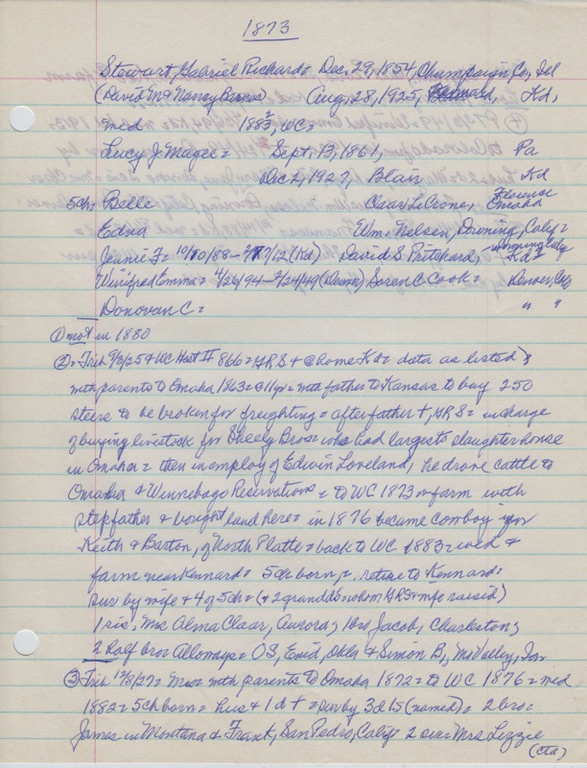 1873
Stewart, Gabriel Richard= Dec. 29, 1854, Champaign Co, Ill
(David M & Nancy Barnes) Aug. 28, 1925, Kd,
med 1883, WC=
Lucy J. Magee= Sept. 13, 1861, Pa
Dec 2, 1927, Blair Kd
5ch= Belle Clear LeCrone, Florence Omaha
Edna Wm. Nelson, Downing, Calif=
Jeanie F= 10/10/88 - /12 (Kd) David S Pritchard, Kd=
Winifred Emma= 4/26/94 - 2/24/49 (Denver) Soren C Cook= Denver, Colo
Donovan C= " "
① not in 1880
②= Trib 9/2/25 & WC Hist II 866= GRS + @ home Kd= data as listed &
with parents to Omaha 1863= @ 11 yr= with father to Kansas to buy 250
steers to be broken for freighting= after father +, GRS= in charge
of buying livestock for Sheely Bros= who had largest slaughter house
in Omaha= then in employ of Edwin Loveland, he drove cattle to
Omaha & Winnebago Reservations= to WC 1873 on farm with
stepfather & bought land here= in 1876 became cowboy for
Keith & Barton, of North Platte= back to WC 1883= wed &
farm near Kennard= 5ch born,= retire to Kennard=
sur by wife & 4 of 5ch= (+ 2 granddts= whom GRS= raised)
1 sis, Mrs Alma Claar, Aurora; 1 bro Jacob, Charleston;
2 Half bros Alloways= OS, Enid, Okla & Simon B, Mo Valley, Ia=
③ Trib 12/8/27= Mrs= with parents to Omaha 1872= to WC 1876= med
1882= 5ch born= hus & 1 dt += sur by 3d 1s (named)= 2 bro=
James in Montana & Frank, San Pedro, Calif= 2 sis= Mrs Lizzie